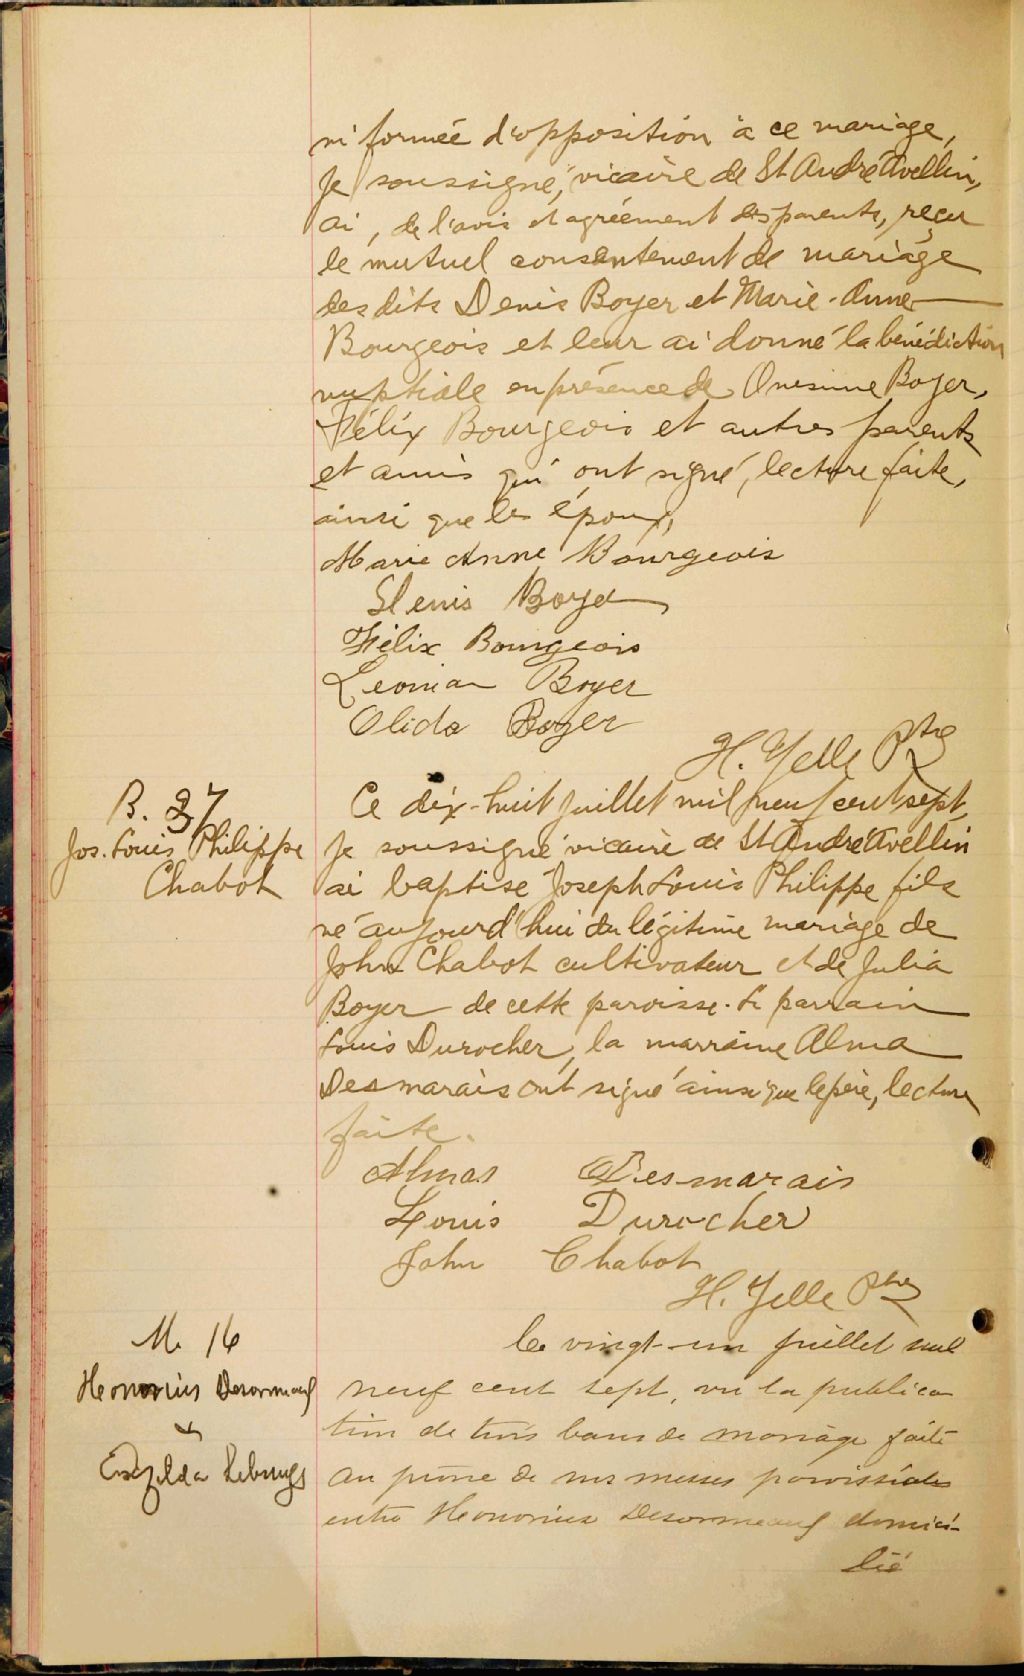 ni formée d'opposition à ce mariage,
Je soussigné, vicaire de St André Avellin,
ai, de l'avis et agrément des parents, reçu
le mutuel consentement de mariage
des dits Denis Boyer et Marie-Anne
Bourgeois et leur ai donné la bénédiction
nuptiale en présence de Onesime Boyer,
Félix Bourgeois et autres parents
et amis qui ont signé, lecture faite,
ainsi que les époux,
Marie Anne Bourgeois
Denis Boyer
Félix Bourgeois
Boyer
Olida Boyer
H. Yelle Ptre
B. 37
Jos. Louis Philippe
Chabot
Ce dix-huit juillet mil neuf cent sept,
Je soussigné vicaire de St André Avellin
ai baptisé Joseph Louis Philippe fils
né aujourd'hui du légitime mariage de
John Chabot cultivateur et de Julia
Boyer de cette paroisse. Le parrain
Louis Durocher, la marraine Alma
Desmarais ont signé ainsi que le père, lecture
faite.
Alma Desmarais
Louis Durocher
John Chabot
H. Yelle Ptre
M. 16
Honorius Desormeaux
&
Exzilda
Le vingt-un juillet mil
neuf cent sept, vu la publica
tion de trois bans de mariage faite
au prône de nos messes paroissiales
entre Honorius Desormeaux domici-
lié